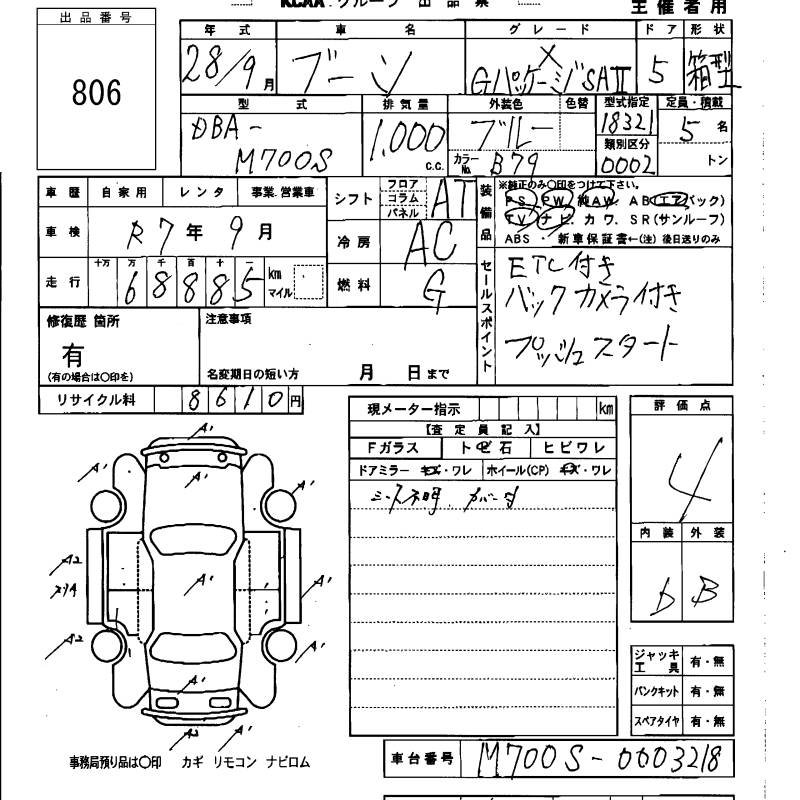 KCAA グループ 出品票
主催者用
出品番号
806
年式 車名 グレード ドア 形状
28/9月 ブーン X GパッケージSAII 5 箱型
型式 排気量 外装色 色替 型式指定 定員・積載
DBA-M700S 1,000 c.c. ブルー 18321 5 名
カラーNo. B79 類別区分 0002 トン
車歴 自家用 レンタ 事業.営業車
シフト フロア コラム パネル AT
装備品 ※純正のみ○印をつけて下さい。
PS PW 純AW AB(エアバック)
TV ナビ カワ SR(サンルーフ)
ABS 新車保証書←(注) 後日送りのみ
車検 R7年 9月
冷房 AC
走行 十万 万 千 百 十 一 68885 km マイル
燃料 G
セールスポイント
ETC付き
バックカメラ付き
プッシュスタート
修復歴 箇所
有
(有の場合は○印を)
注意事項
名変期日の短い方 月 日まで
リサイクル料 8610円
現メーター指示 km
【査定員記入】
Fガラス トビ石 ヒビワレ
ドアミラー キズ・ワレ ホイール(CP) キズ・ワレ
評価点
4
内装 外装
D B
A1
A1 A1 A1
A2
A1
A1
A2 A1
A1
A2 A1
ジャッキ工具 有・無
パンクキット 有・無
スペアタイヤ 有・無
事務局預り品は○印 カギ リモコン ナビロム
車台番号 M700S-0003218